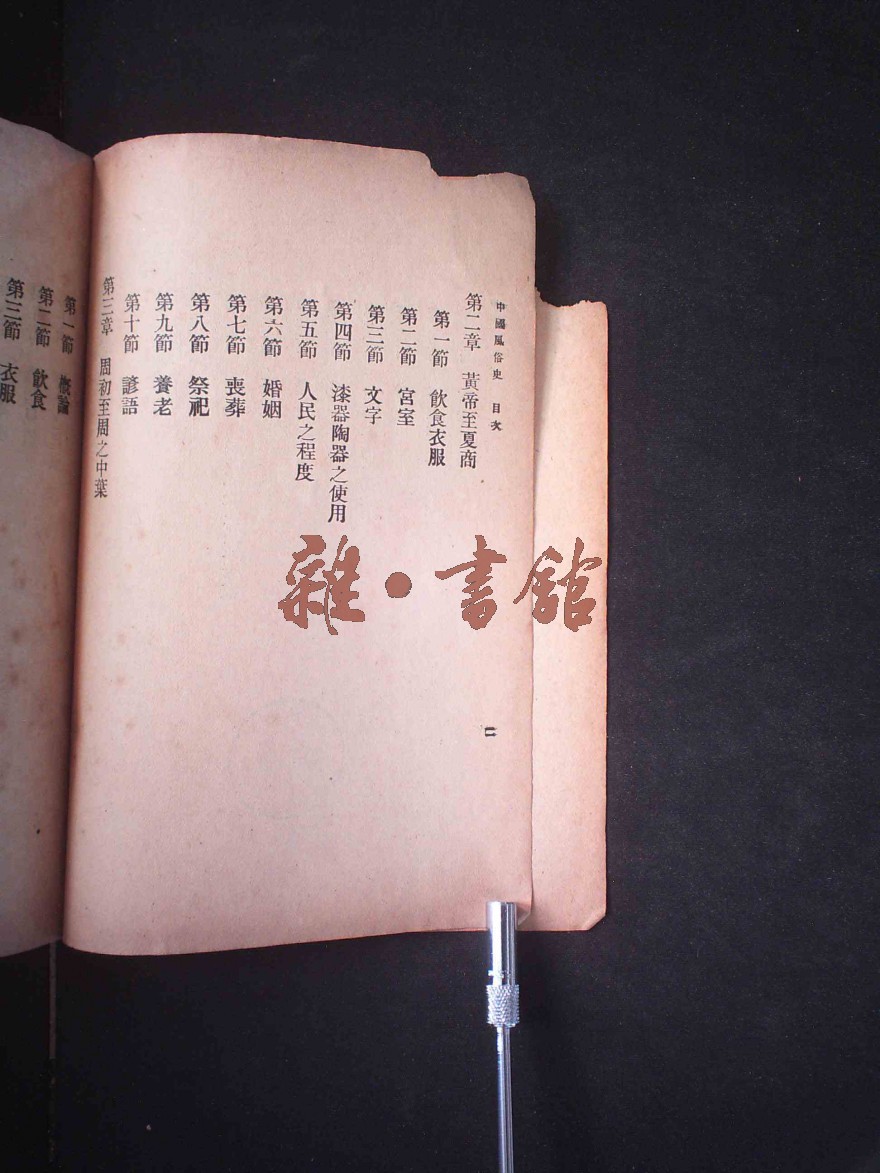 中國風俗史 目次
第二章 黃帝至夏商
第一節 飲食衣服
第二節 宮室
第三節 文字
第四節 漆器陶器之使用
第五節 人民之程度
第六節 婚姻
第七節 喪葬
第八節 祭祀
第九節 養老
第十節 諺語
第三章 周初至周之中葉
二
第一節 概論
第二節 飲食
第三節 衣服
雜·書館